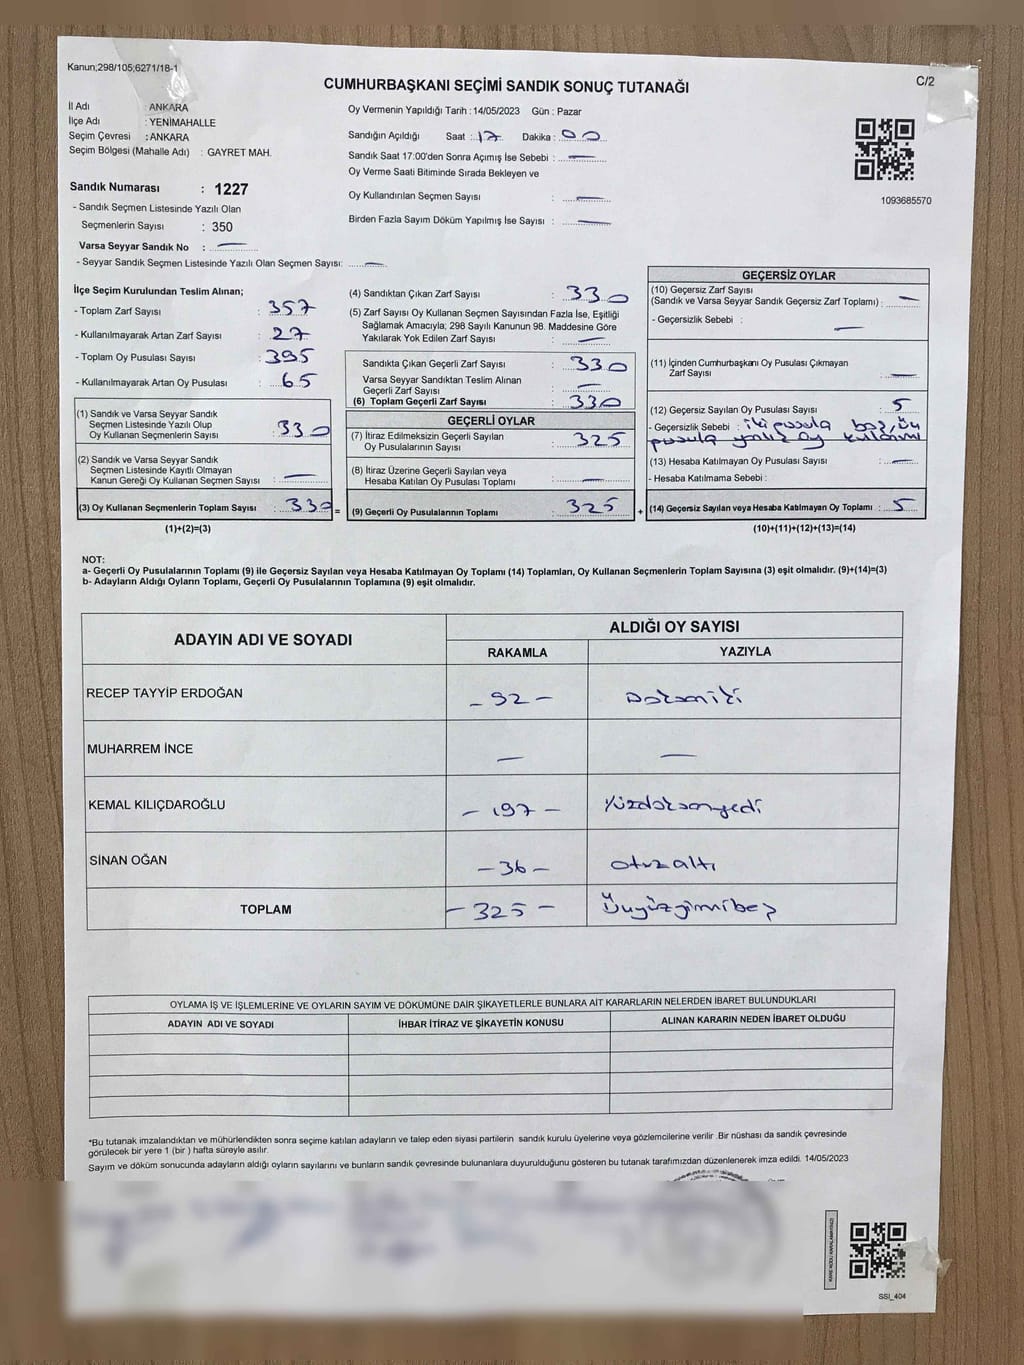 Kanun;298/105;6271/18-1
C/2
CUMHURBAŞKANI SEÇİMİ SANDIK SONUÇ TUTANAĞI
İl Adı : ANKARA
İlçe Adı : YENİMAHALLE
Seçim Çevresi : ANKARA
Seçim Bölgesi (Mahalle Adı) : GAYRET MAH.
Sandık Numarası : 1227
- Sandık Seçmen Listesinde Yazılı Olan
Seçmenlerin Sayısı : 350
Varsa Seyyar Sandık No : —
- Seyyar Sandık Seçmen Listesinde Yazılı Olan Seçmen Sayısı: —
Oy Vermenin Yapıldığı Tarih : 14/05/2023 Gün : Pazar
Sandığın Açıldığı Saat : 17 Dakika : 00
Sandık Saat 17:00'den Sonra Açımış İse Sebebi : —
Oy Verme Saati Bitiminde Sırada Bekleyen ve
Oy Kullandırılan Seçmen Sayısı : —
Birden Fazla Sayım Döküm Yapılmış İse Sayısı : —
1093685570
İlçe Seçim Kurulundan Teslim Alınan;
- Toplam Zarf Sayısı : 357
- Kullanılmayarak Artan Zarf Sayısı : 27
- Toplam Oy Pusulası Sayısı : 395
- Kullanılmayarak Artan Oy Pusulası : 65
(1) Sandık ve Varsa Seyyar Sandık
Seçmen Listesinde Yazılı Olup
Oy Kullanan Seçmenlerin Sayısı : 330
(2) Sandık ve Varsa Seyyar Sandık
Seçmen Listesinde Kayıtlı Olmayan
Kanun Gereği Oy Kullanan Seçmen Sayısı : —
(3) Oy Kullanan Seçmenlerin Toplam Sayısı : 330 =
(1)+(2)=(3)
(4) Sandıktan Çıkan Zarf Sayısı : 330
(5) Zarf Sayısı Oy Kullanan Seçmen Sayısından Fazla İse, Eşitliği
Sağlamak Amacıyla; 298 Sayılı Kanunun 98. Maddesine Göre
Yakılarak Yok Edilen Zarf Sayısı : —
Sandıkta Çıkan Geçerli Zarf Sayısı : 330
Varsa Seyyar Sandıktan Teslim Alınan
Geçerli Zarf Sayısı : —
(6) Toplam Geçerli Zarf Sayısı : 330
GEÇERLİ OYLAR
(7) İtiraz Edilmeksizin Geçerli Sayılan
Oy Pusulasının Sayısı : 325
(8) İtiraz Üzerine Geçerli Sayılan veya
Hesaba Katılan Oy Pusulası Toplamı : —
(9) Geçerli Oy Pusulalarının Toplamı : 325 +
GEÇERSİZ OYLAR
(10) Geçersiz Zarf Sayısı
(Sandık ve Varsa Seyyar Sandık Geçersiz Zarf Toplamı) : —
- Geçersizlik Sebebi : —
(11) İçinden Cumhurbaşkanı Oy Pusulası Çıkmayan
Zarf Sayısı : —
(12) Geçersiz Sayılan Oy Pusulası Sayısı : 5
- Geçersizlik Sebebi : iki pusula boş, üç
pusula yanlış oy kullanımı
(13) Hesaba Katılmayan Oy Pusulası Sayısı : —
- Hesaba Katılmama Sebebi :
(14) Geçersiz Sayılan veya Hesaba Katılmayan Oy Toplamı : 5
(10)+(11)+(12)+(13)=(14)
NOT:
a- Geçerli Oy Pusulalarının Toplamı (9) ile Geçersiz Sayılan veya Hesaba Katılmayan Oy Toplamı (14) Toplamları, Oy Kullanan Seçmenlerin Toplam Sayısına (3) eşit olmalıdır. (9)+(14)=(3)
b- Adayların Aldığı Oyların Toplamı, Geçerli Oy Pusulalarının Toplamına (9) eşit olmalıdır.
ADAYIN ADI VE SOYADI
ALDIĞI OY SAYISI
RAKAMLA YAZIYLA
RECEP TAYYİP ERDOĞAN – 92 – Doksaniki
MUHARREM İNCE — —
KEMAL KILIÇDAROĞLU – 197 – Yüzdoksanyedi
SİNAN OĞAN – 36 – otuzaltı
TOPLAM – 325 – Üçyüzyirmibeş
OYLAMA İŞ VE İŞLEMLERİNE VE OYLARIN SAYIM VE DÖKÜMÜNE DAİR ŞİKAYETLERLE BUNLARA AİT KARARLARIN NELERDEN İBARET BULUNDUKLARI
ADAYIN ADI VE SOYADI İHBAR İTİRAZ VE ŞİKAYETİN KONUSU ALINAN KARARIN NEDEN İBARET OLDUĞU
*Bu tutanak imzalandıktan ve mühürlendikten sonra seçime katılan adayların ve talep eden siyasi partilerin sandık kurulu üyelerine veya gözlemcilerine verilir .Bir nüshası da sandık çevresinde
görülecek bir yere 1 (bir ) hafta süreyle asılır.
Sayım ve döküm sonucunda adayların aldığı oyların sayılarını ve bunların sandık çevresinde bulunanlara duyurulduğunu gösteren bu tutanak tarafımızdan düzenlenerek imza edildi. 14/05/2023
SSI_404